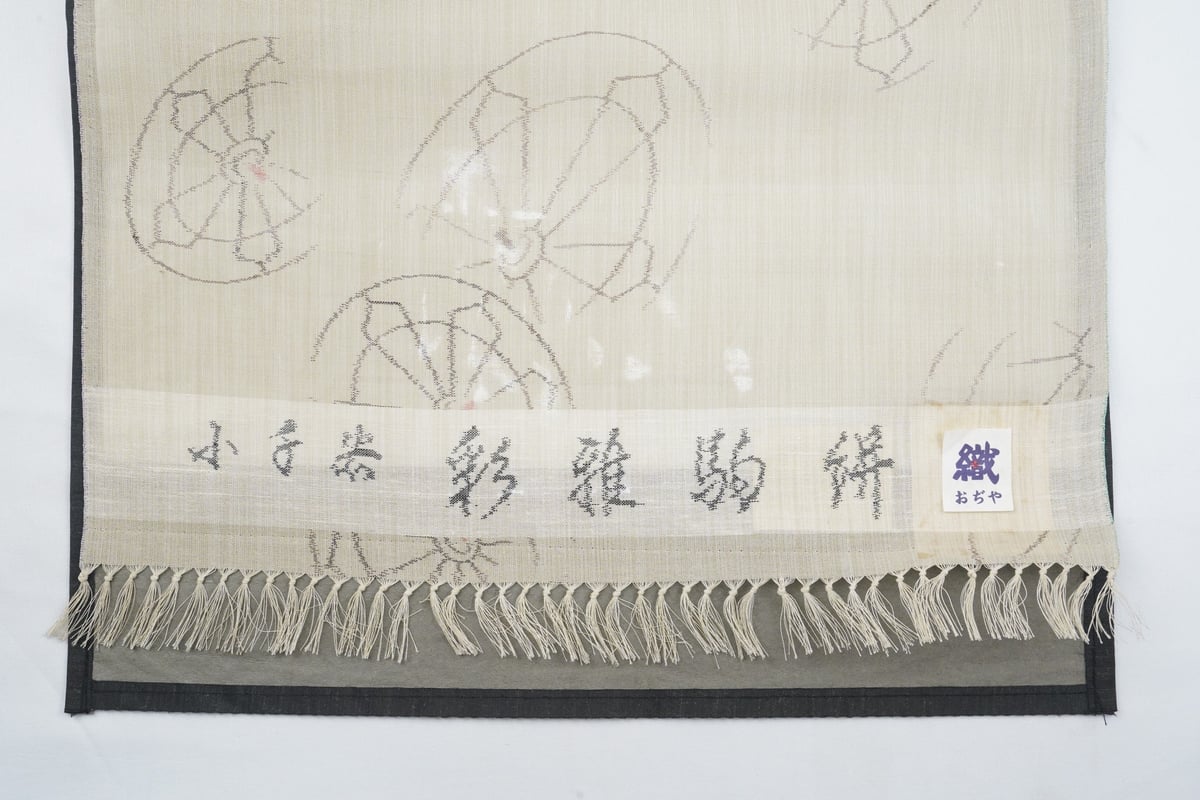 小千谷 彩雅駒絣
織
おぢや